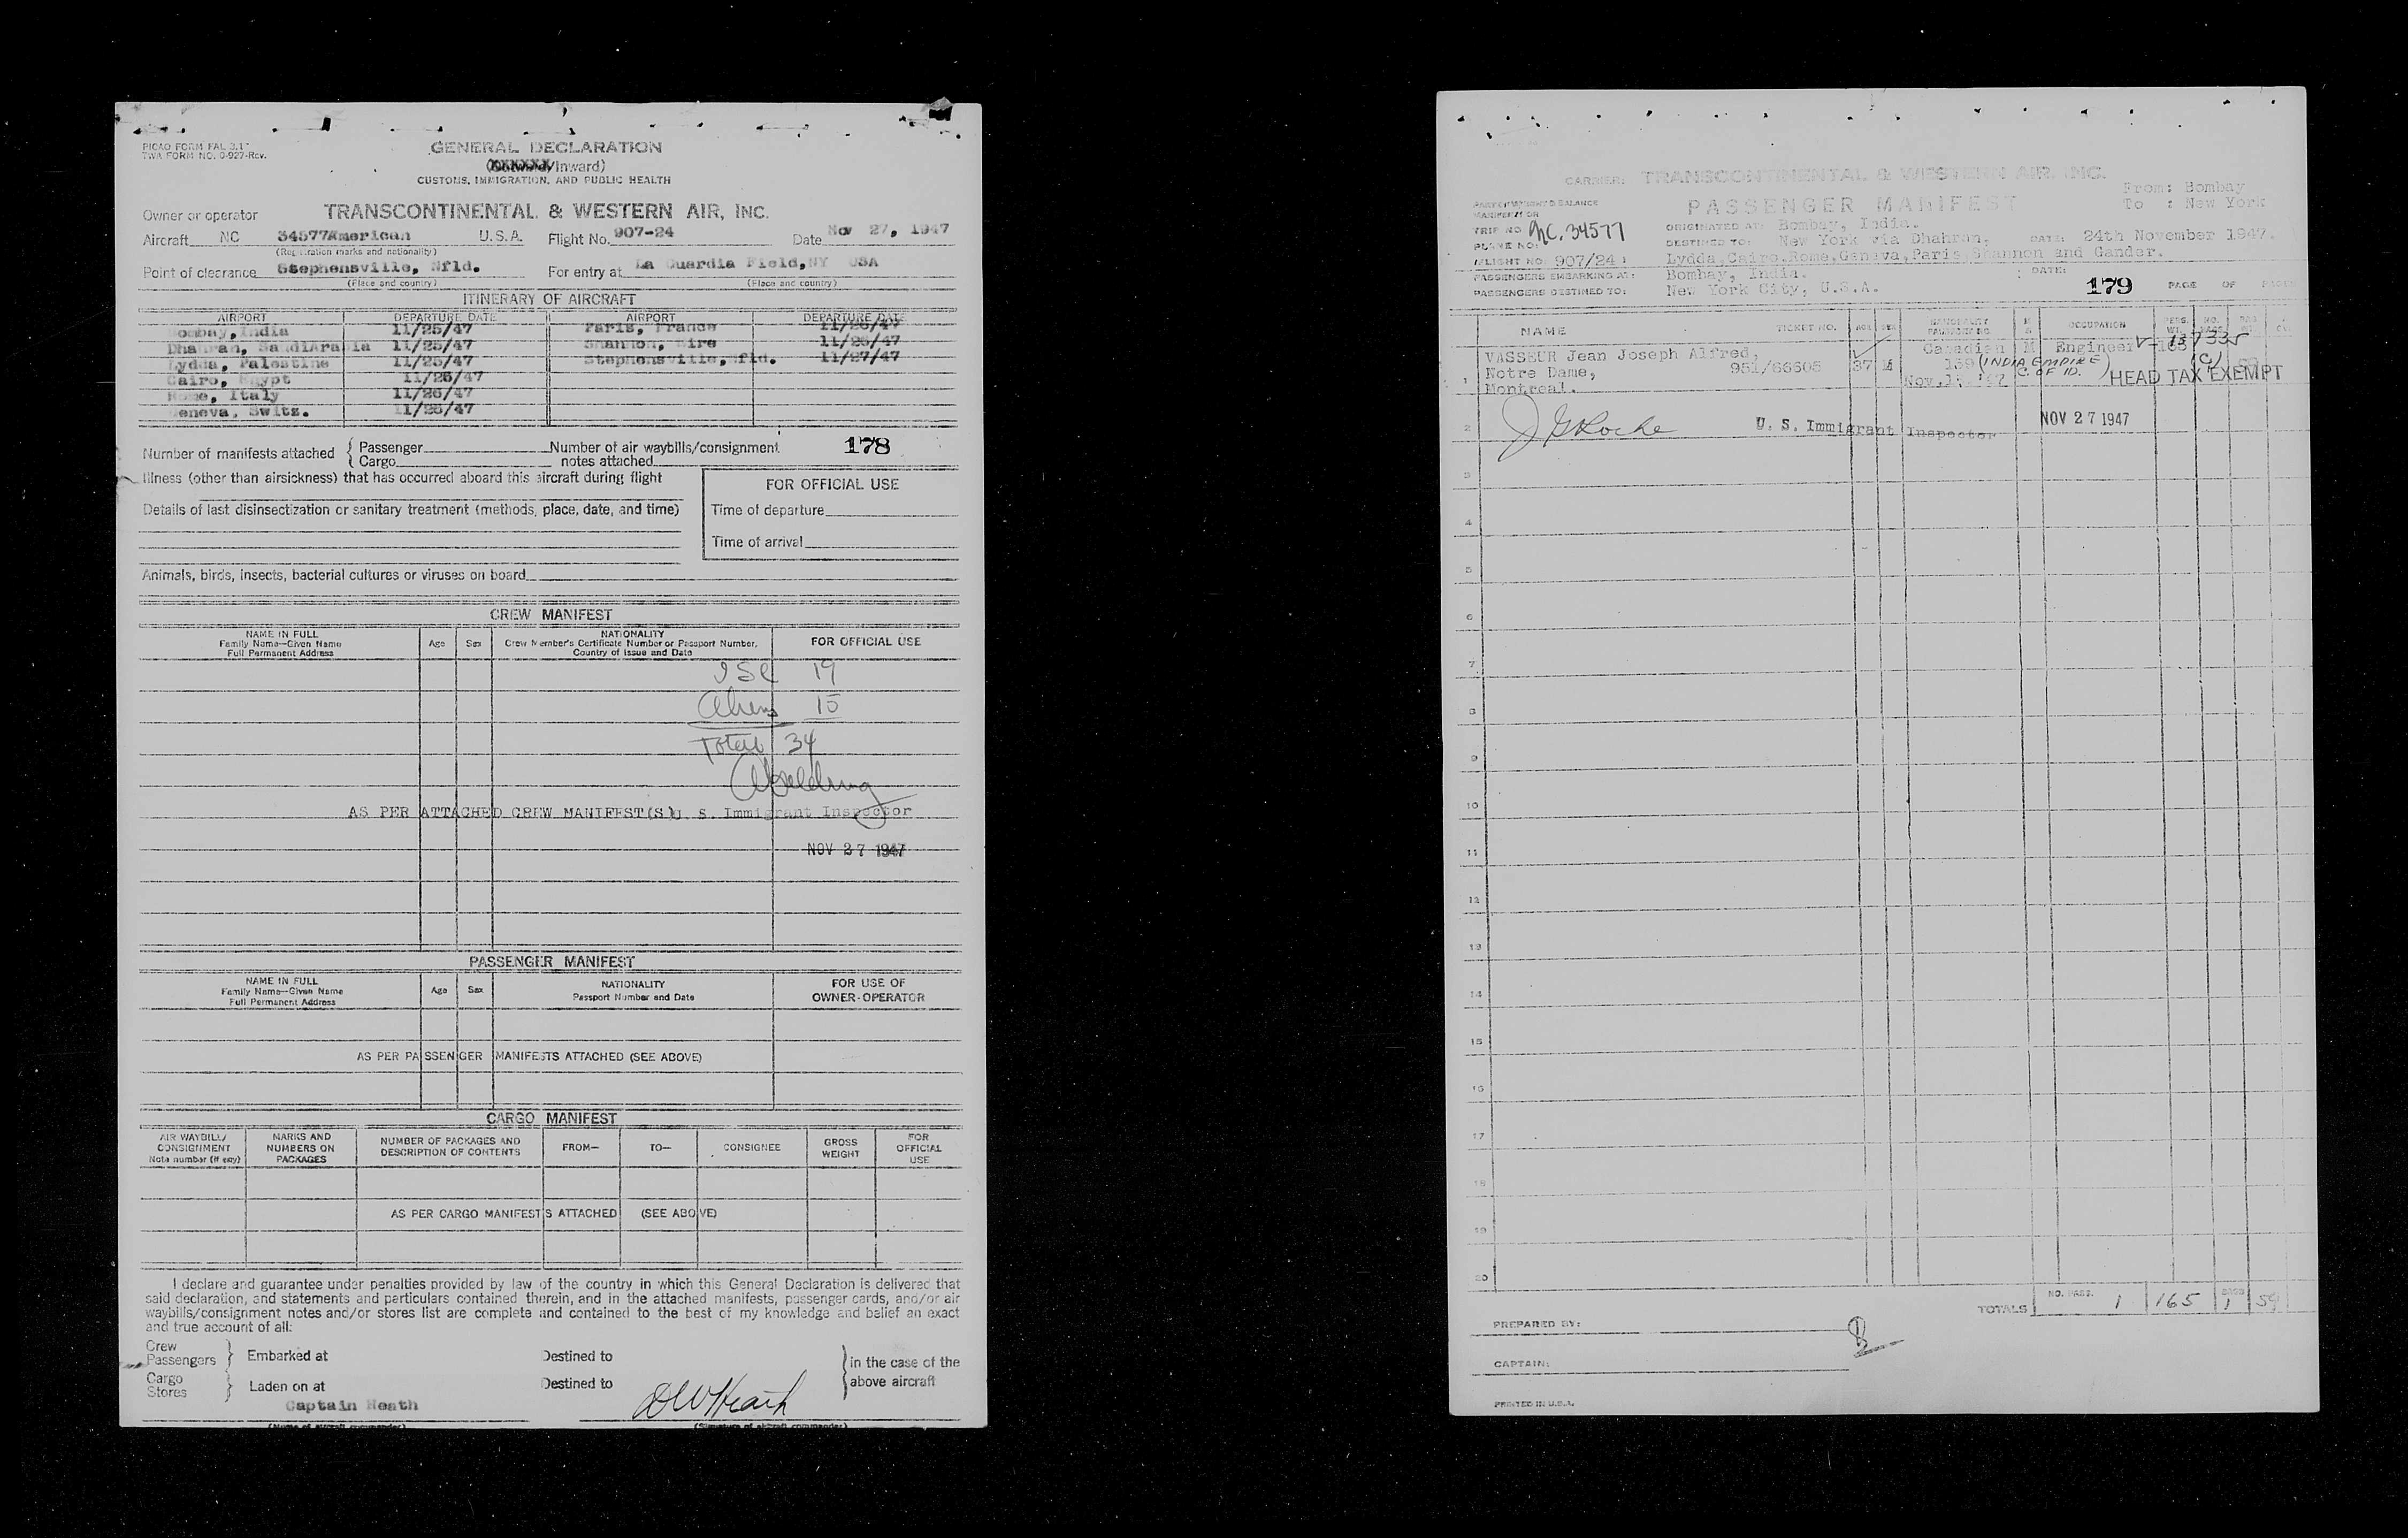 PICAO FORM FAL 3.1
TWA FORM NO. O-927-Rev.
GENERAL DECLARATION
(XXXXXXX/Inward)
CUSTOMS, IMMIGRATION, AND PUBLIC HEALTH
Owner or operator TRANSCONTINENTAL & WESTERN AIR, INC.
Aircraft NC 34577American U.S.A. Flight No. 907-24 Date Nov 27, 1947
(Registration marks and nationality)
Point of clearance Stephensville, Nfld. For entry at La Guardia Field,NY USA
(Place and country) (Place and country)
ITINERARY OF AIRCRAFT
AIRPORT DEPARTURE DATE AIRPORT DEPARTURE DATE
Bombay,India 11/25/47 Paris, France 11/26/47
Dhahran, SaudiArabia 11/25/47 Shannon, Eire 11/26/47
Lydda, Palestine 11/25/47 Stephensville, Nfld. 11/27/47
Cairo, Egypt 11/26/47
Rome, Italy 11/26/47
Geneva, Switz. 11/26/47
Number of manifests attached { Passenger Number of air waybills/consignment 178
Cargo notes attached
Illness (other than airsickness) that has occurred aboard this aircraft during flight
FOR OFFICIAL USE
Details of last disinsectization or sanitary treatment (methods, place, date, and time)
Time of departure
Time of arrival
Animals, birds, insects, bacterial cultures or viruses on board
CREW MANIFEST
NAME IN FULL
Family Name—Given Name
Full Permanent Address
Age Sex
NATIONALITY
Crew Member's Certificate Number or Passport Number,
Country of Issue and Date
FOR OFFICIAL USE
USC 19
Aliens 15
Total 34
AS PER ATTACHED CREW MANIFEST(S) U. S. Immigrant Inspector
NOV 27 1947
PASSENGER MANIFEST
NAME IN FULL
Family Name—Given Name
Full Permanent Address
Age Sex
NATIONALITY
Passport Number and Date
FOR USE OF
OWNER-OPERATOR
AS PER PASSENGER MANIFESTS ATTACHED (SEE ABOVE)
CARGO MANIFEST
AIR WAYBILL/
CONSIGNMENT
Note number (if any)
MARKS AND
NUMBERS ON
PACKAGES
NUMBER OF PACKAGES AND
DESCRIPTION OF CONTENTS
FROM— TO— CONSIGNEE
GROSS
WEIGHT
FOR
OFFICIAL
USE
AS PER CARGO MANIFESTS ATTACHED (SEE ABOVE)
I declare and guarantee under penalties provided by law of the country in which this General Declaration is delivered that
said declaration, and statements and particulars contained therein, and in the attached manifests, passenger cards, and/or air
waybills/consignment notes and/or stores list are complete and contained to the best of my knowledge and belief an exact
and true account of all:
Crew
Passengers } Embarked at Destined to } in the case of the
Cargo
Stores } Laden on at Destined to above aircraft
Captain Heath DW Heath
(Name of aircraft commander) (Signature of aircraft commander)
CARRIER: TRANSCONTINENTAL & WESTERN AIR, INC.
From: Bombay
To : New York
PASSENGER MANIFEST
TRIP NO.
PLANE NO: NC. 34577
FLIGHT NO: 907/24
ORIGINATED AT: Bombay, India.
DESTINED TO: New York via Dhahran, DATE: 24th November 1947.
Lydda,Cairo,Rome,Geneva,Paris,Shannon and Gander.
PASSENGERS EMBARKING AT: Bombay, India. DATE:
PASSENGERS DESTINED TO: New York City, U.S.A. 179 PAGE OF PAGES
NAME TICKET NO. AGE SEX NATIONALITY OCCUPATION
1 VASSEUR Jean Joseph Alfred, 37 M Canadian M Engineer
Notre Dame, 951/66605 (INDIA EMPIRE C. OF ID.) (C)
Montreal. HEAD TAX EXEMPT
2 U. S. Immigrant Inspector NOV 27 1947
3
4
5
6
7
8
9
10
11
12
13
14
15
16
17
18
19
20
TOTALS NO. PASS. 1 165 1 59
PREPARED BY:
CAPTAIN:
PRINTED IN U.S.A.